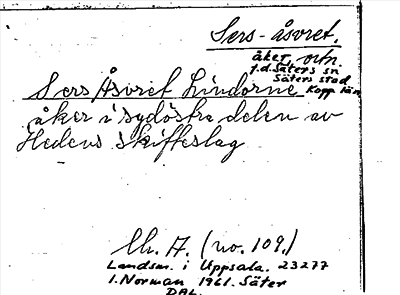 Sers-åsvret.
åker, ortn.
f.d. Säters sn
Säters stad
Kopp län
Sers Åsvret Lindorne
åker i sydöstra delen av
Hedens skifteslag
Ch. A. (no. 109.)
Landsm. i Uppsala. 23277
I. Norman 1961. Säter
DAL.